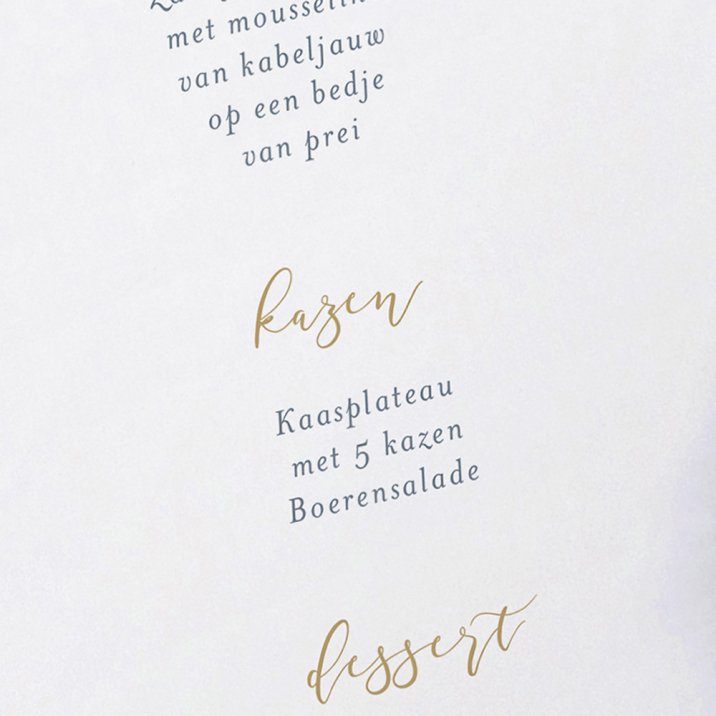 met mousseline
van kabeljauw
op een bedje
van prei
kazen
Kaasplateau
met 5 kazen
Boerensalade
dessert